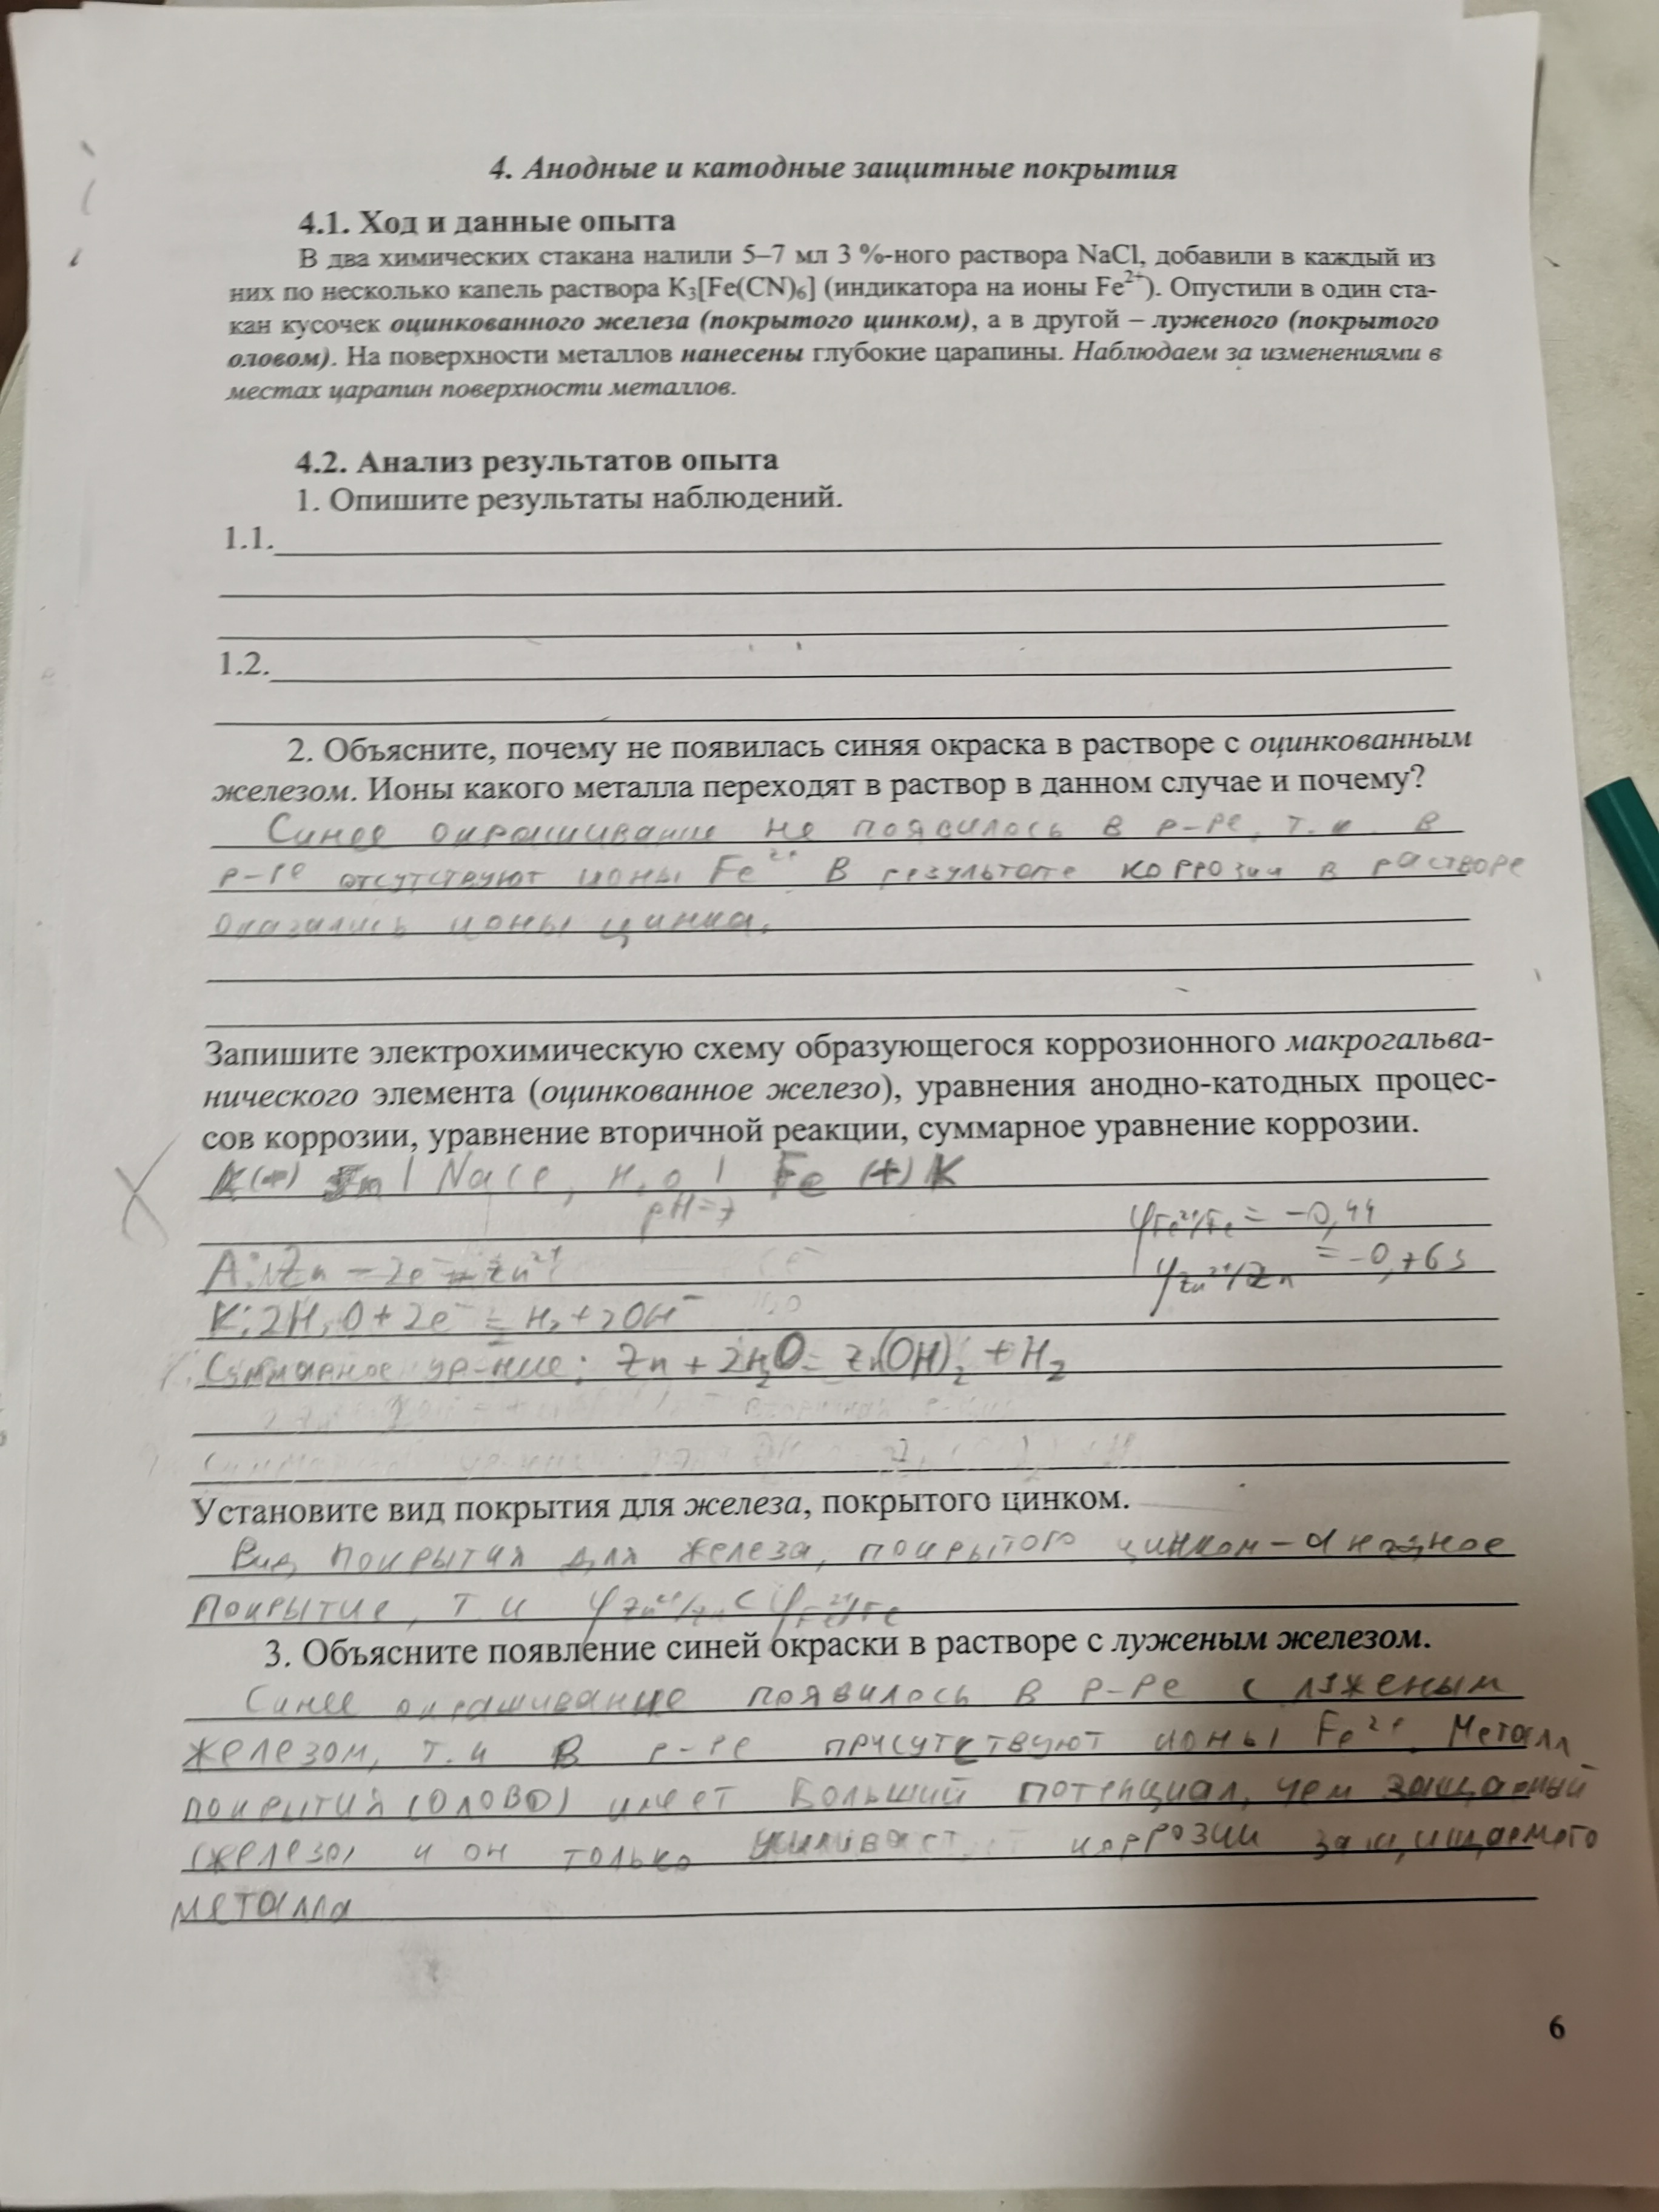 4. Анодные и катодные защитные покрытия
4.1. Ход и данные опыта
В два химических стакана налили 5–7 мл 3 %-ного раствора NaCl, добавили в каждый из
них по несколько капель раствора K₃[Fe(CN)₆] (индикатора на ионы Fe²⁺). Опустили в один ста-
кан кусочек оцинкованного железа (покрытого цинком), а в другой – луженого (покрытого
оловом). На поверхности металлов нанесены глубокие царапины. Наблюдаем за изменениями в
местах царапин поверхности металлов.
4.2. Анализ результатов опыта
1. Опишите результаты наблюдений.
1.1.
1.2.
2. Объясните, почему не появилась синяя окраска в растворе с оцинкованным
железом. Ионы какого металла переходят в раствор в данном случае и почему?
Синее окрашивание не появилось в р-ре, т.к в
р-ре отсутствуют ионы Fe²⁺ В результате коррозии в растворе
оказались ионы цинка.
Запишите электрохимическую схему образующегося коррозионного макрогальва-
нического элемента (оцинкованное железо), уравнения анодно-катодных процес-
сов коррозии, уравнение вторичной реакции, суммарное уравнение коррозии.
(-) Zn | NaCl, H₂O | Fe (+) K
pH=7
φFe²⁺/Fe = -0,44
A: Zn - 2e⁻ = Zn²⁺
φZn²⁺/Zn = -0,763
K: 2H₂O + 2e⁻ = H₂ + 2OH⁻
Суммарное ур-ние: Zn + 2H₂O = Zn(OH)₂ + H₂
Установите вид покрытия для железа, покрытого цинком.
Вид покрытия для железа, покрытого цинком – анодное
покрытие, т.к φZn²⁺/Zn < φFe²⁺/Fe
3. Объясните появление синей окраски в растворе с луженым железом.
Синее окрашивание появилось в р-ре с луженым
железом, т.к в р-ре присутствуют ионы Fe²⁺. Металл
покрытия (олово) имеет больший потенциал, чем
(железо) и он только коррозии защищаемого
металла
6